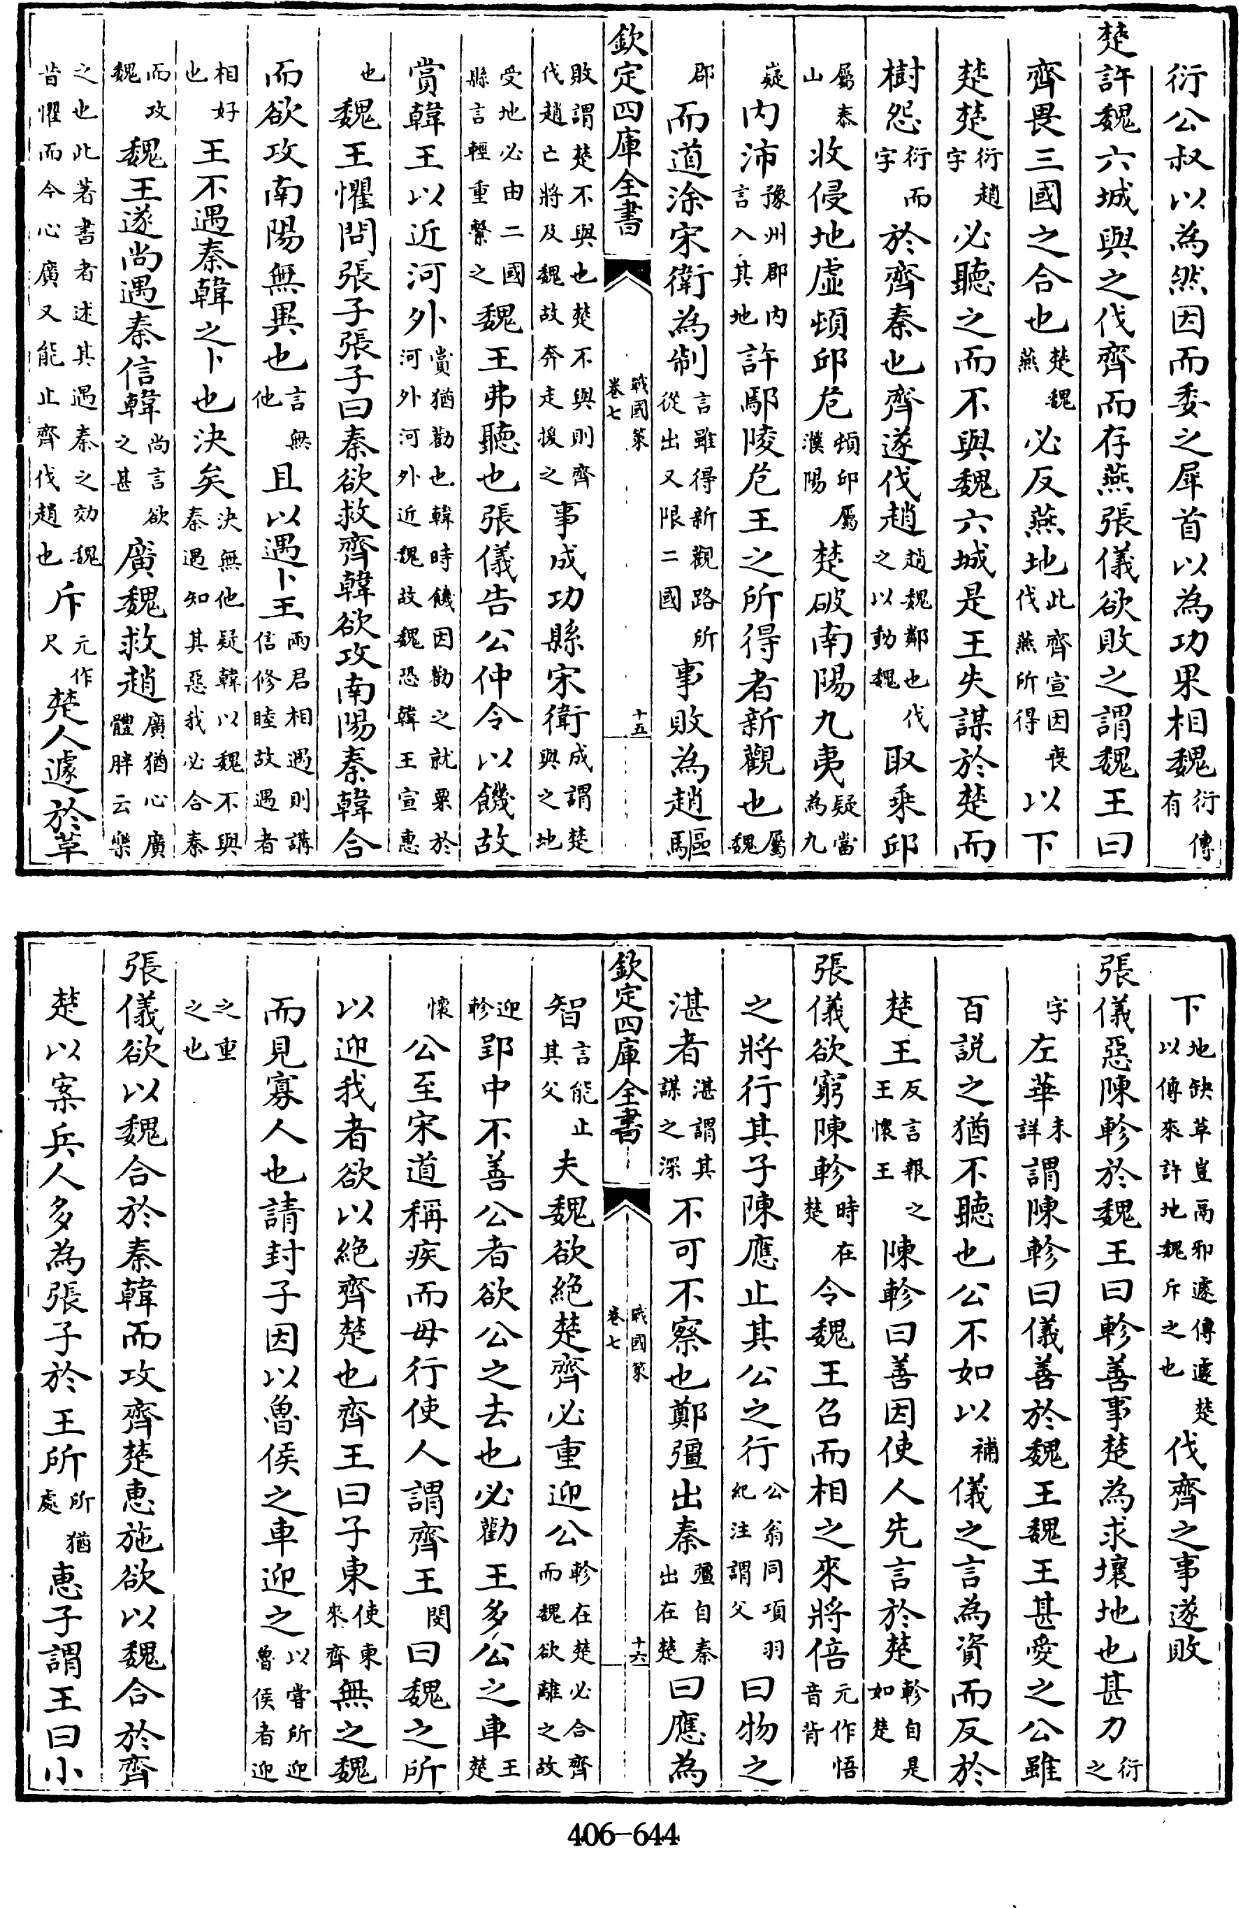 衍公叔以為然因而委之犀首以為功果相魏衍傳有
楚許魏六城與之伐齊而存燕張儀欲敗之謂魏王曰
齊畏三國之合也楚魏燕必反燕地此齊宣因喪伐燕所得以下
楚楚衍趙字必聽之而不與魏六城是王失謀於楚而
樹怨衍而字於齊秦也齊遂伐趙趙魏鄰也伐之以動魏取乘邱
屬泰山收侵地虛頓邱危頓邱屬濮陽楚破南陽九夷疑當為九
嶷內沛豫州郡內言入其地許鄢陵危王之所得者新觀也屬魏
郡而道涂宋衛為制言雖得新觀路所從出又限二國事敗為趙驅
欽定四庫全書 戰國策卷七 十五
敗謂楚不與也楚不與則齊伐趙亡將及魏故奔走援之事成功縣宋衛成謂楚與之地
受地必由二國縣言輕重繫之魏王弗聽也張儀告公仲令以饑故
賞韓王以近河外賞猶勸也韓時饑因勸之就粟於河外河外近魏故魏恐韓王宣惠
也魏王懼問張子張子曰秦欲救齊韓欲攻南陽秦韓合
而欲攻南陽無異也言無他且以遇卜王兩君相遇則講信修睦故遇者
相好也王不遇秦韓之卜也決矣決無他疑韓以魏不與秦遇知其惡我必合秦
而攻魏魏王遂尚遇秦信韓尚言欲之甚廣魏救趙廣猶心廣體胖云樂
之也此著書者述其遇秦之効魏昔懼而今心廣又能止齊伐趙也斥元作尺楚人遽於草
下地缺草豈鬲邪遽傳遽楚以傳來許地魏斥之也伐齊之事遂敗
張儀惡陳軫於魏王曰軫善事楚為求壤地也甚力衍之
字左華未詳謂陳軫曰儀善於魏王魏王甚愛之公雖
百說之猶不聽也公不如以補儀之言為資而反於
楚王反言報之王懷王陳軫曰善因使人先言於楚軫自是如楚
張儀欲窮陳軫時在楚令魏王召而相之來將倍元作悟音背
之將行其子陳應止其公之行公翁同項羽紀注謂父曰物之
湛者湛謂其謀之深不可不察也鄭彊出秦彊自秦出在楚曰應為
欽定四庫全書 戰國策卷七 十六
智言能止其父夫魏欲絕楚齊必重迎公軫在楚必合齊而魏欲離之故
迎軫郢中不善公者欲公之去也必勸王多公之車王楚
懷公至宋道稱疾而毋行使人謂齊王閔曰魏之所
以迎我者欲以絕齊楚也齊王曰子東使東來齊無之魏
而見寡人也請封子因以魯侯之車迎之以嘗所迎魯侯者迎
之重之也
張儀欲以魏合於秦韓而攻齊楚惠施欲以魏合於齊
楚以案兵人多為張子於王所所猶處惠子謂王曰小
406-644